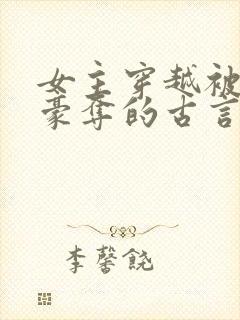 女主穿越被
豪夺的古言
李馨饶